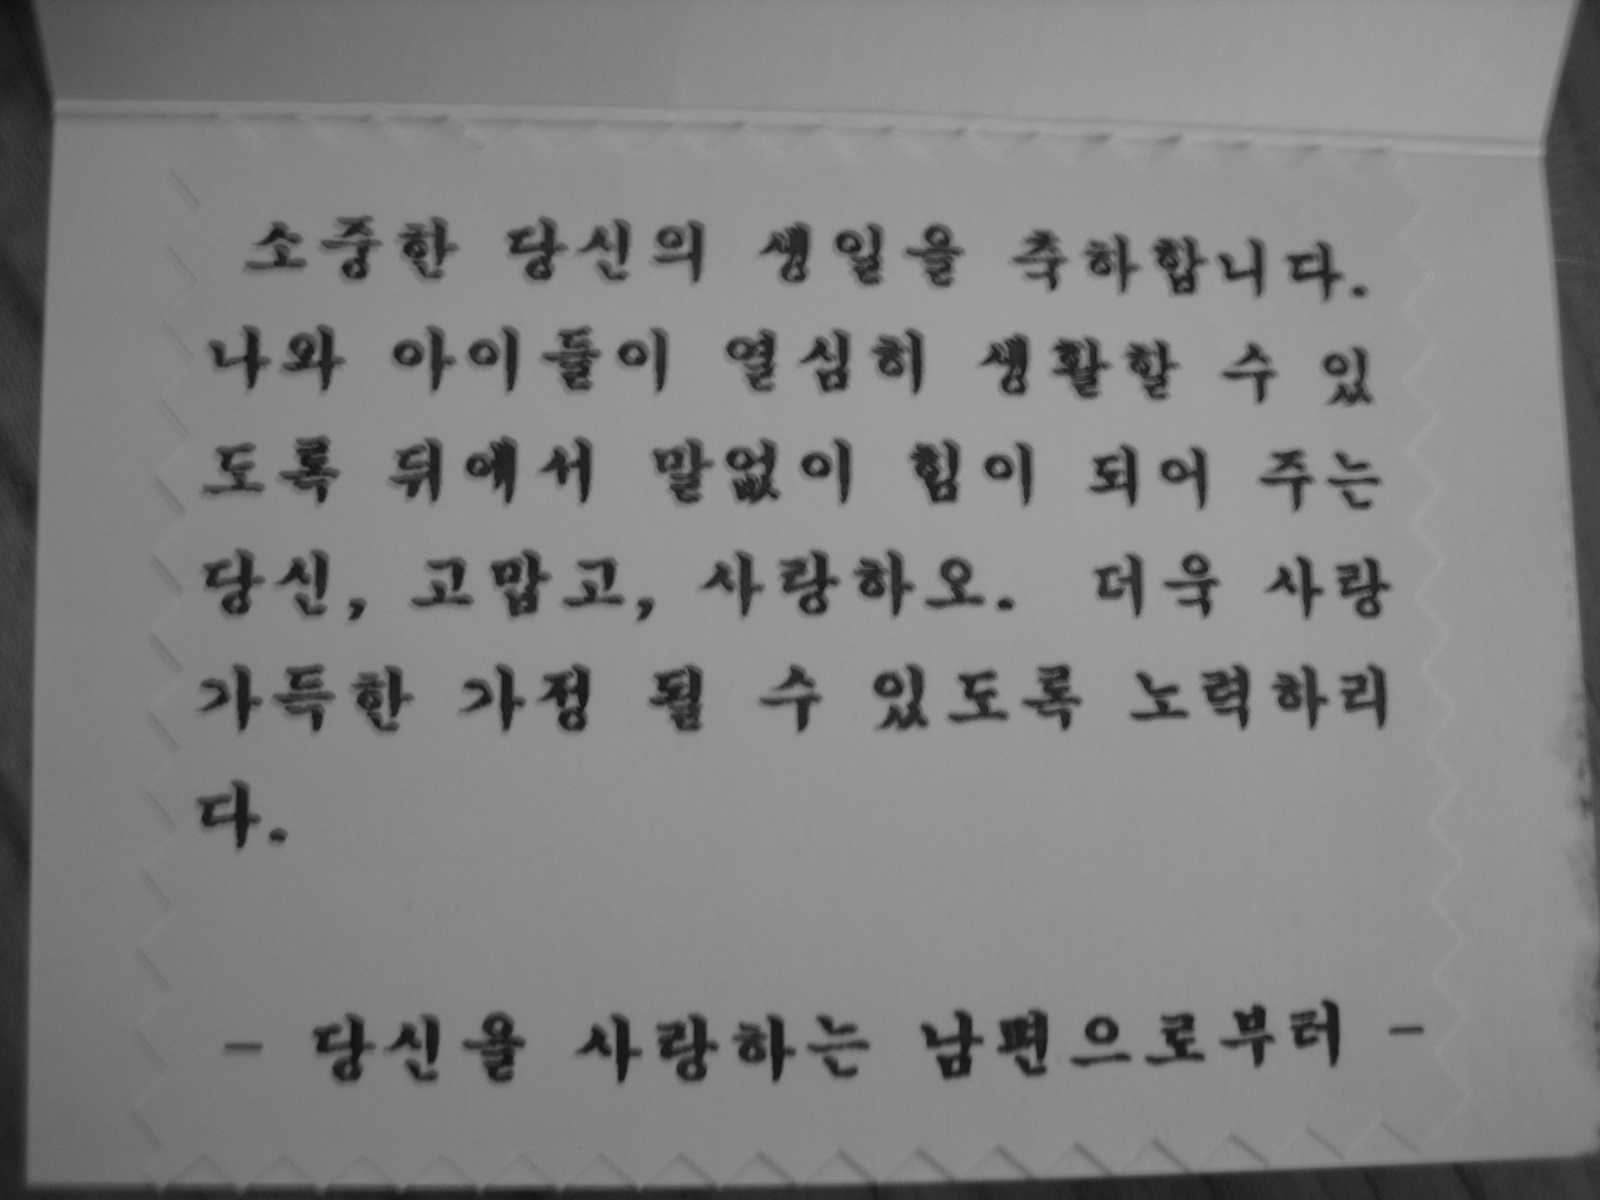 소중한 당신의 생일을 축하합니다.
나와 아이들이 열심히 생활할 수 있
도록 뒤에서 말없이 힘이 되어 주는
당신, 고맙고, 사랑하오. 더욱 사랑
가득한 가정 될 수 있도록 노력하리
다.
- 당신을 사랑하는 남편으로부터 -